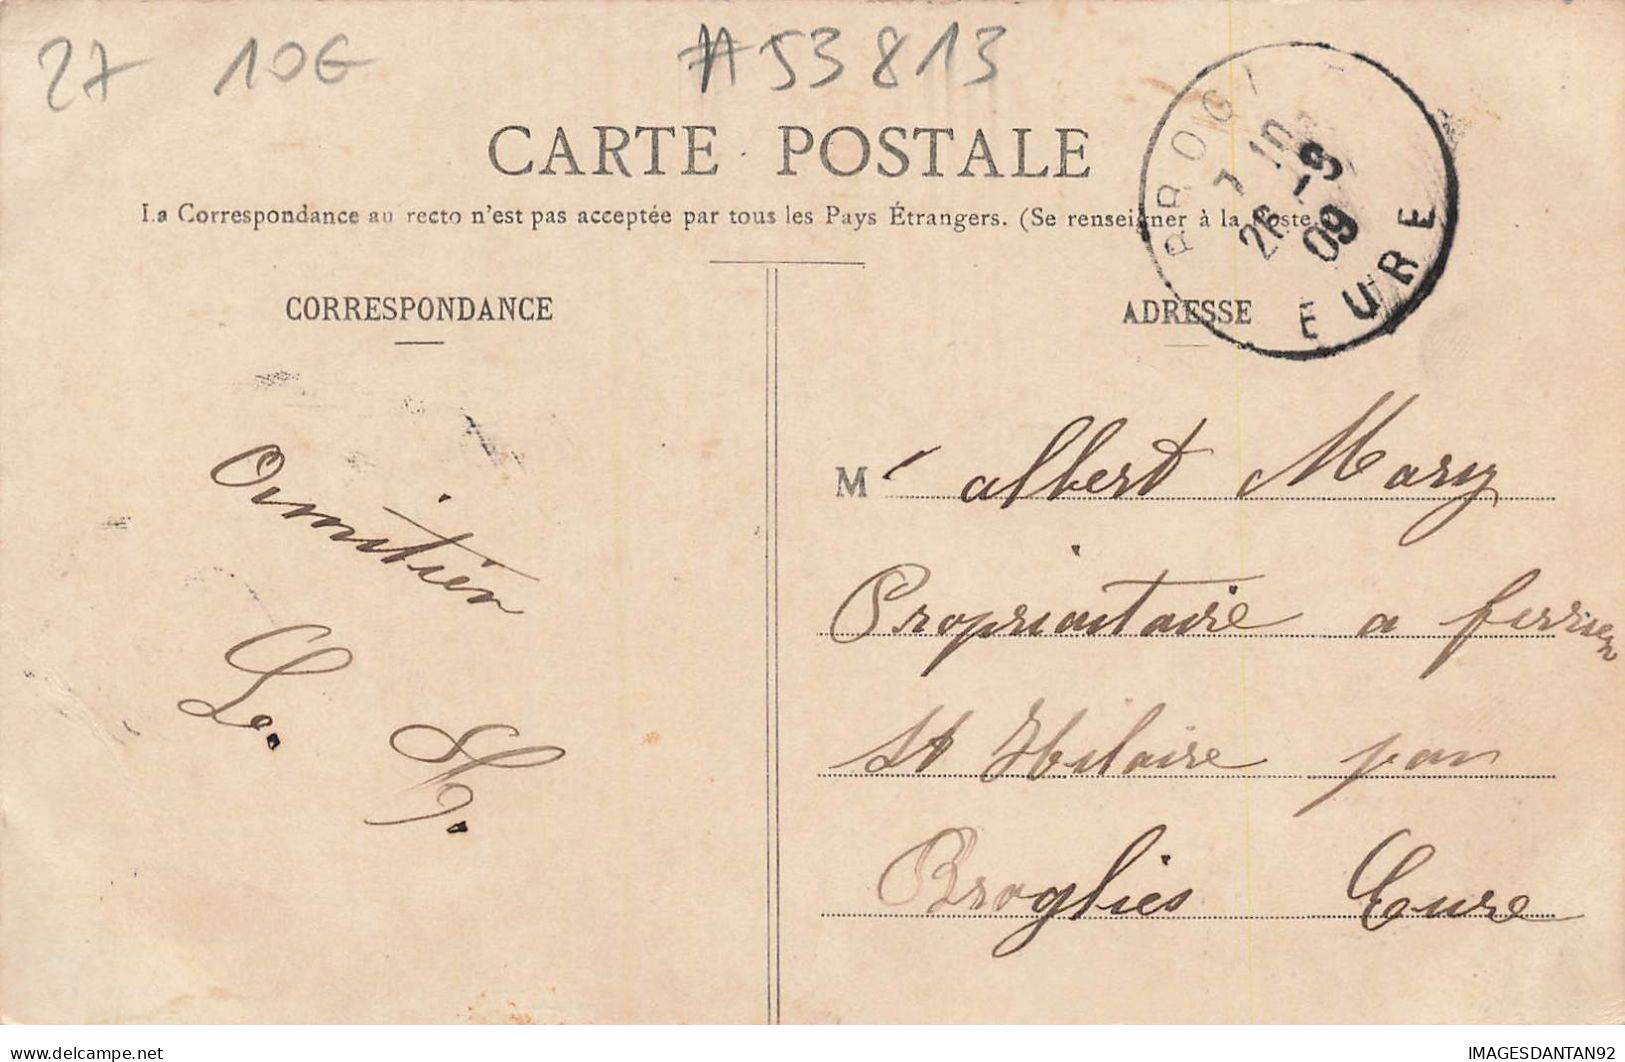 27 10G #53813
CARTE POSTALE
La Correspondance au recto n'est pas acceptée par tous les Pays Étrangers. (Se renseigner à la Poste
BROGL E
7 10
26 -8
09
EURE
CORRESPONDANCE
ADRESSE
Amitiér
L. H.
M albert Mary
Propriautaire a ferrier
St Hilaire par
Broglies Eure
www.delcampe.net
IMAGESDANTAN92